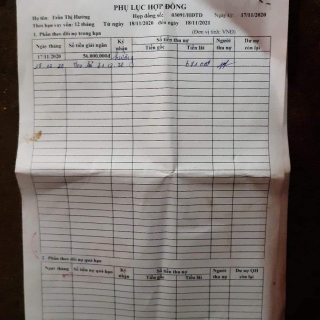 PHỤ LỤC HỢP ĐỒNG
Họ tên: Trần Thị Hương Hợp đồng số: 03091/HĐTD Ngày ký: 17/11/2020
Thời hạn vay vốn: 12 tháng Từ ngày 18/11/2020 đến ngày 18/11/2021
1. Phần theo dõi nợ trong hạn (Đơn vị tính: VNĐ)
Ngày tháng Số tiền giải ngân Ký nhận Số tiền thu nợ Người thu nợ Dư nợ còn lại
Tiền gốc Tiền lãi
17/11/2020 50.000.000đ
18 12 20
2. Phần theo dõi nợ quá hạn
Ngày tháng Số tiền nợ quá hạn Ký nhận Số tiền thu nợ Người thu nợ Dư nợ QH còn lại
Tiền gốc Tiền lãi